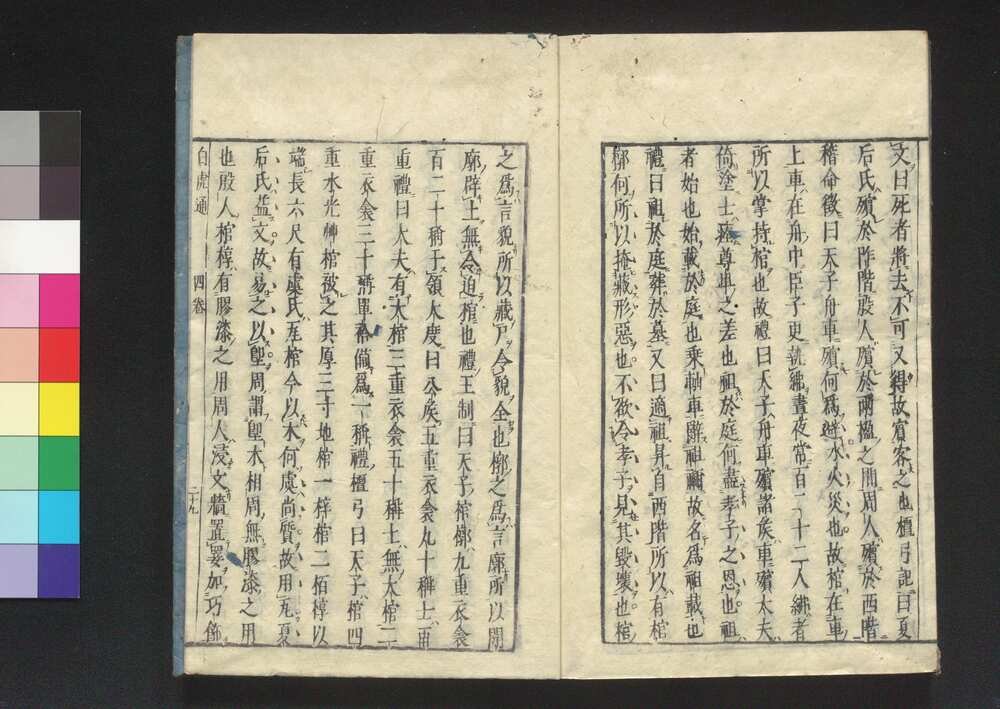 文曰死者將去不可又得故賓客之也檀弓記曰夏
后氏殯於阼階殷人殯於兩楹之間周人殯於西階
稽命徵曰天子舟車殯何爲避水火災也故棺在車
上車在舟中臣子更執紼晝夜常百二十二人紼者
所以掌持棺也故禮曰天子舟車殯諸侯車殯大夫
倚塗士瘞尊卑之差也祖於庭何盡孝子之恩也祖
者始也始載於庭也乘軸車辭祖禰故名爲祖載也
禮曰祖於庭葬於墓又曰適祖昇自西階所以有棺
槨何所以掩藏形惡也不欲令孝子見其毀壞也棺
之爲言貌所以藏尸令貌全也槨之爲言廓所以開
廓辟土無令迫棺也禮王制曰天子棺槨九重衣衾
百二十稱于領大度曰公侯五重衣衾九十稱士再
重禮曰大夫有大棺三重衣衾五十稱士無大棺二
重衣衾三十稱單袷備爲一稱禮檀弓曰天子棺四
重水兕革棺被之其厚三寸地棺一梓棺二栢椁以
端長六尺有虞氏瓦棺今以木何虞尚質故用瓦夏
后氏益文故易之以堲周謂堲木相周無膠漆之用
也殷人棺椁有膠漆之用周人浸文牆置翣加巧飾
白虎通 四卷 二十九